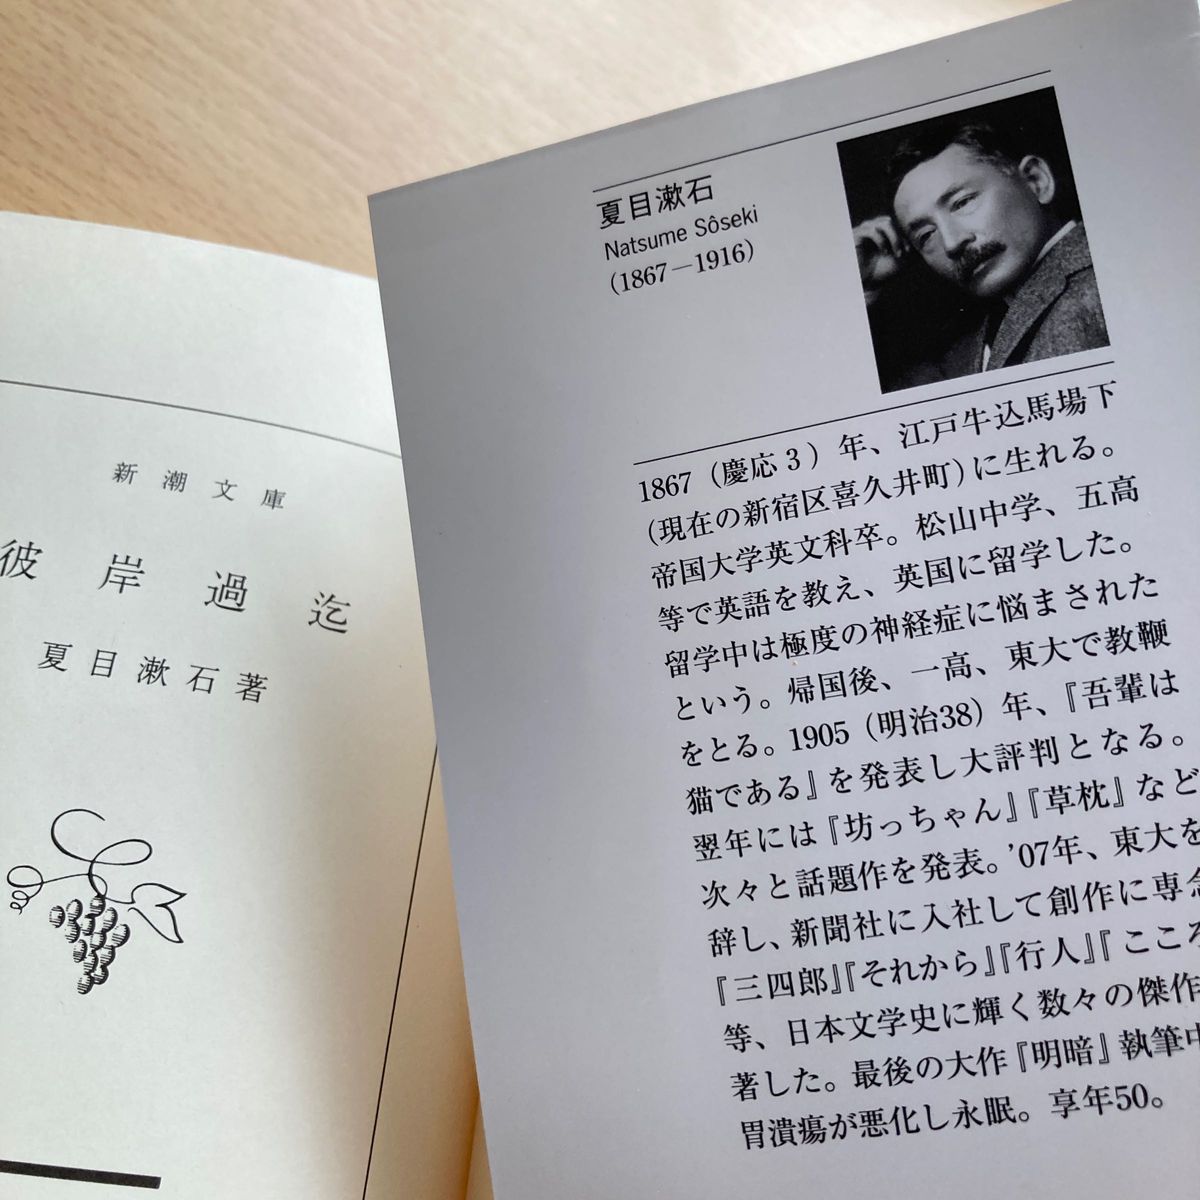 新潮文庫
彼岸過迄
夏目漱石著
夏目漱石
Natsume Sôseki
(1867－1916)
1867（慶応3）年、江戸牛込馬場下
(現在の新宿区喜久井町)に生れる。
帝国大学英文科卒。松山中学、五高
等で英語を教え、英国に留学した。
留学中は極度の神経症に悩まされた
という。帰国後、一高、東大で教鞭
をとる。1905（明治38）年、『吾輩は
猫である』を発表し大評判となる。
翌年には『坊っちゃん』『草枕』など
次々と話題作を発表。’07年、東大を
辞し、新聞社に入社して創作に専念
『三四郎』『それから』『行人』『こころ
等、日本文学史に輝く数々の傑作
著した。最後の大作『明暗』執筆中
胃潰瘍が悪化し永眠。享年50。